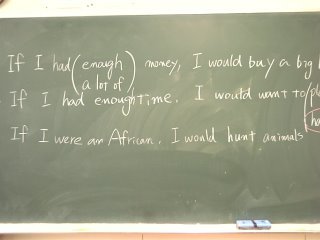 If I had (enough money, I would buy a big
a lot of)
If I had enough time. I would want to
If I were an African. I would hunt animals